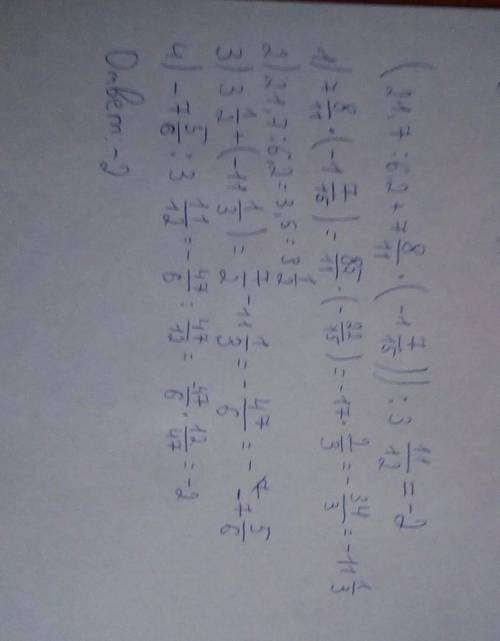 (21,7 : 6,2 + 7 8/11 · (-1 7/15)) : 3 11/12 = -2
1) 7 8/11 · (-1 7/15) = 85/11 · (-22/15) = -17 · 2/3 = -34/3 = -11 1/3
2) 21,7 : 6,2 = 3,5 = 3 1/2
3) 3 1/2 + (-11 1/3) = 7/2 - 11 1/3 = -47/6 = - -7 5/6
4) -7 5/6 : 3 11/12 = -47/6 : 47/12 = 47/6 · 12/47 = -2
Ответ: -2